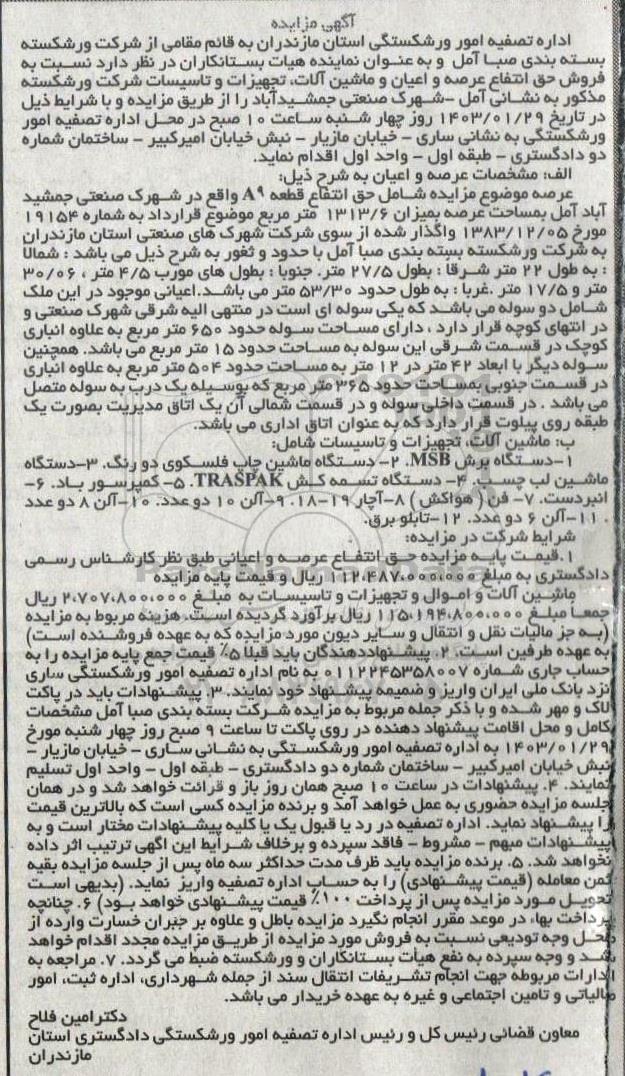 آگهی مزایده
اداره تصفیه امور ورشکستگی استان مازندران به قائم مقامی از شرکت ورشکسته
بسته بندی صبا آمل و به عنوان نماینده هیات بستانکاران در نظر دارد نسبت به
فروش حق انتفاع عرصه و اعیان و ماشین آلات، تجهیزات و تاسیسات شرکت ورشکسته
مذکور به نشانی آمل -شهرک صنعتی جمشیدآباد را از طریق مزایده و با شرایط ذیل
در تاریخ ۱۴۰۳/۰۱/۲۹ روز چهار شنبه ساعت ۱۰ صبح در محل اداره تصفیه امور
ورشکستگی به نشانی ساری - خیابان مازیار - نبش خیابان امیرکبیر - ساختمان شماره
دو دادگستری - طبقه اول - واحد اول اقدام نماید.
الف: مشخصات عرصه و اعیان به شرح ذیل:
عرصه موضوع مزایده شامل حق انتفاع قطعه A۹ واقع در شهرک صنعتی جمشید
آباد آمل بمساحت عرصه بمیزان ۱۳۱۳/۶ متر مربع موضوع قرارداد به شماره ۱۹۱۵۴
مورخ ۱۳۸۳/۱۲/۰۵ واگذار شده از سوی شرکت شهرک های صنعتی استان مازندران
به شرکت ورشکسته بسته بندی صبا آمل با حدود و ثغور به شرح ذیل می باشد : شمالا
: به طول ۲۲ متر شرقا : بطول ۲۷/۵ متر. جنوبا : بطول های مورب ۴/۵ متر ، ۳۰/۰۶
متر و ۱۷/۵ متر .غربا : به طول حدود ۵۳/۳۰ متر می باشد.اعیانی موجود در این ملک
شامل دو سوله می باشد که یکی سوله ای است در منتهی الیه شرقی شهرک صنعتی و
در انتهای کوچه قرار دارد ، دارای مساحت سوله حدود ۶۵۰ متر مربع به علاوه انباری
کوچک در قسمت شرقی این سوله به مساحت حدود ۱۵ متر مربع می باشد. همچنین
سوله دیگر با ابعاد ۴۲ متر در ۱۲ متر به مساحت حدود ۵۰۴ متر مربع به علاوه انباری
در قسمت جنوبی بمساحت حدود ۳۶۵ متر مربع که بوسیله یک درب به سوله متصل
می باشد . در قسمت داخلی سوله و در قسمت شمالی آن یک اتاق مدیریت بصورت یک
طبقه روی پیلوت قرار دارد که به عنوان اتاق اداری می باشد.
ب: ماشین آلات، تجهیزات و تاسیسات شامل:
۱-دستگاه برش MSB. ۲- دستگاه ماشین چاپ فلسکوی دو رنگ. ۳-دستگاه
ماشین لب چسب. ۴- دستگاه تسمه کش TRASPAK. ۵- کمپرسور باد. ۶-
انبردست. ۷- فن ( هواکش ) ۸-آچار ۱۹-۱۸. ۹-آلن ۱۰ دو عدد. ۱۰-آلن ۸ دو عدد
. ۱۱-آلن ۶ دو عدد. ۱۲-تابلو برق.
شرایط شرکت در مزایده:
۱.قیمت پایه مزایده حق انتفاع عرصه و اعیانی طبق نظر کارشناس رسمی
دادگستری به مبلغ ۱۱۲،۴۸۷،۰۰۰،۰۰۰ ریال و قیمت پایه مزایده
ماشین آلات و اموال و تجهیزات و تاسیسات به مبلغ ۲،۷۰۷،۸۰۰،۰۰۰ ریال
جمعا مبلغ ۱۱۵،۱۹۴،۸۰۰،۰۰۰ ریال برآورد گردیده است، هزینه مربوط به مزایده
(به جز مالیات نقل و انتقال و سایر دیون مورد مزایده که به عهده فروشنده است)
به عهده طرفین است. ۲. پیشنهاددهندگان باید قبلا ۵٪ قیمت جمع پایه مزایده را به
حساب جاری شماره ۰۱۱۲۲۴۵۳۵۸۰۰۷ به نام اداره تصفیه امور ورشکستگی ساری
نزد بانک ملی ایران واریز و ضمیمه پیشنهاد خود نمایند. ۳. پیشنهادات باید در پاکت
لاک و مهر شده و با ذکر جمله مربوط به مزایده شرکت بسته بندی صبا آمل مشخصات
کامل و محل اقامت پیشنهاد دهنده در روی پاکت تا ساعت ۹ صبح روز چهار شنبه مورخ
۱۴۰۳/۰۱/۲۹ به اداره تصفیه امور ورشکستگی به نشانی ساری - خیابان مازیار -
نبش خیابان امیرکبیر - ساختمان شماره دو دادگستری - طبقه اول - واحد اول تسلیم
نمایند. ۴. پیشنهادات در ساعت ۱۰ صبح همان روز باز و قرائت خواهد شد و در همان
جلسه مزایده حضوری به عمل خواهد آمد و برنده مزایده کسی است که بالاترین قیمت
را پیشنهاد نماید. اداره تصفیه در رد یا قبول یک یا کلیه پیشنهادات مختار است و به
پیشنهادات مبهم - مشروط - فاقد سپرده و برخلاف شرایط این اگهی ترتیب اثر داده
نخواهد شد. ۵. برنده مزایده باید ظرف مدت حداکثر سه ماه پس از جلسه مزایده بقیه
ثمن معامله (قیمت پیشنهادی) را به حساب اداره تصفیه واریز نماید. (بدیهی است
تحویل مورد مزایده پس از پرداخت ۱۰۰٪ قیمت پیشنهادی خواهد بود) ۶. چنانچه
پرداخت بها، در موعد مقرر انجام نگیرد مزایده باطل و علاوه بر جبران خسارت وارده از
محل وجه تودیعی نسبت به فروش مورد مزایده از طریق مزایده مجدد اقدام خواهد
شد و وجه سپرده به نفع هیأت بستانکاران و ورشکسته ضبط می گردد. ۷. مراجعه به
ادارات مربوطه جهت انجام تشریفات انتقال سند از جمله شهرداری، اداره ثبت، امور
مالیاتی و تامین اجتماعی و غیره به عهده خریدار می باشد.
دکترامین فلاح
معاون قضائی رئیس کل و رئیس اداره تصفیه امور ورشکستگی دادگستری استان
مازندران